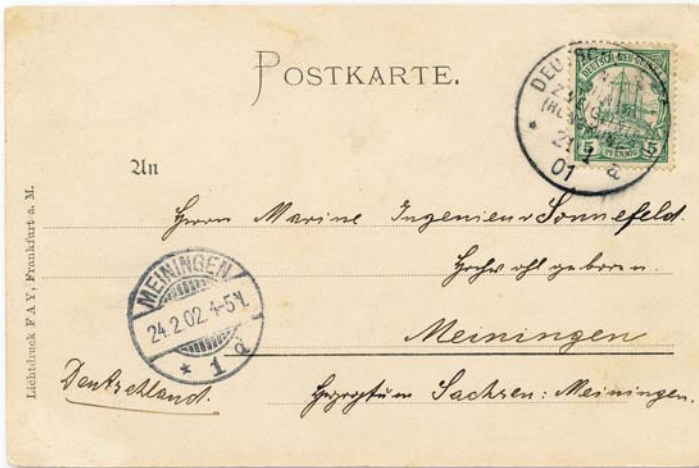 POSTKARTE.
DEUTSCH-NEU-GUINEA
5 PFENNIG 5
DEUTSCH
ZWEIGST
21 1 a
01
An
Herrn Marine Ingenieur Sonnefeld.
Hochwohlgeboren.
Meiningen
Herzogtum Sachsen: Meiningen.
Deutschland.
MEININGEN
24.2.02.4-5N.
* 1 a
Lichtdruck FAY, Frankfurt a. M.